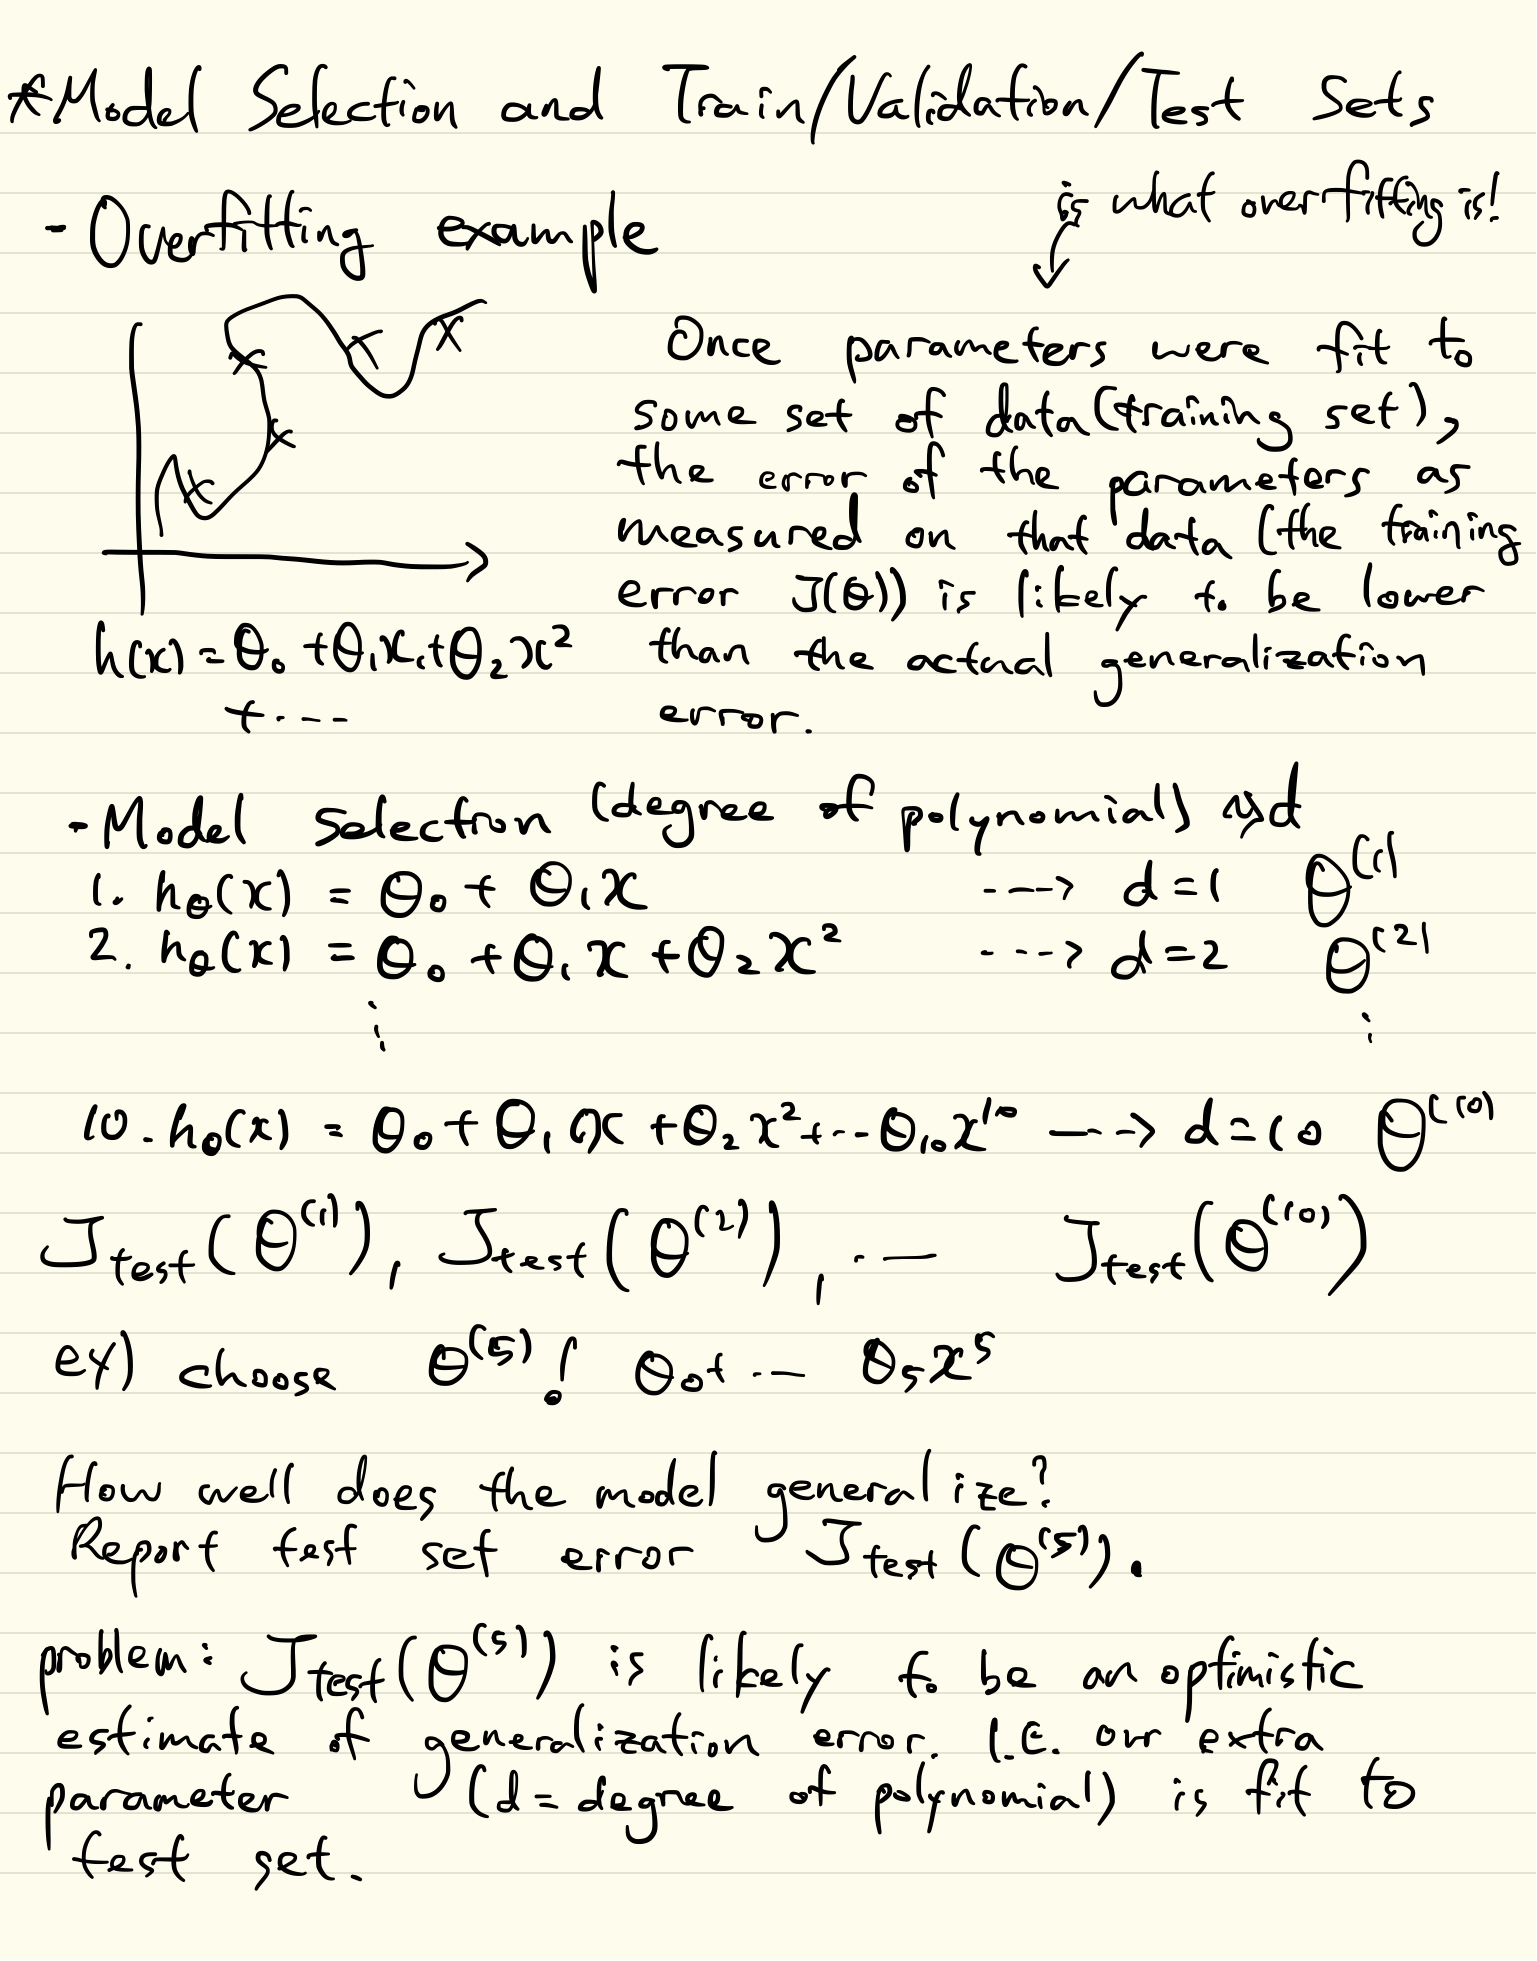 *Model Selection and Train/Validation/Test Sets
- Overfitting example
is what overfitting is!
Once parameters were fit to
some set of data (training set),
the error of the parameters as
measured on that data (the training
error J(θ)) is likely to be lower
than the actual generalization
error.
h(x) = θ₀ + θ₁x₁ + θ₂x²
+ ...
- Model selection (degree of polynomial) d
1. hθ(x) = θ₀ + θ₁x ---> d=1 θ⁽¹⁾
2. hθ(x) = θ₀ + θ₁x + θ₂x² ---> d=2 θ⁽²⁾
⋮ ⋮
10. hθ(x) = θ₀ + θ₁x + θ₂x² + ... θ₁₀x¹⁰ ---> d=10 θ⁽¹⁰⁾
J_test(θ⁽¹⁾), J_test(θ⁽²⁾), ... J_test(θ⁽¹⁰⁾)
ex) choose θ⁽⁵⁾! θ₀+ ... θ₅x⁵
How well does the model generalize?
Report test set error J_test(θ⁽⁵⁾).
problem: J_test(θ⁽⁵⁾) is likely to be an optimistic
estimate of generalization error. I.E. our extra
parameter (d = degree of polynomial) is fit to
test set.